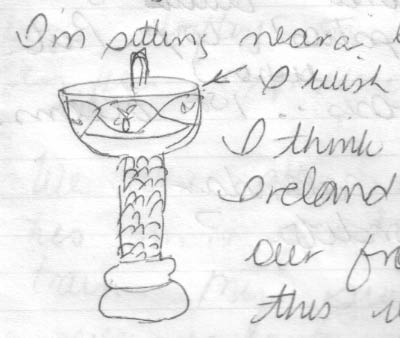 I'm sitting near a
I wish
I think
Ireland
our
this